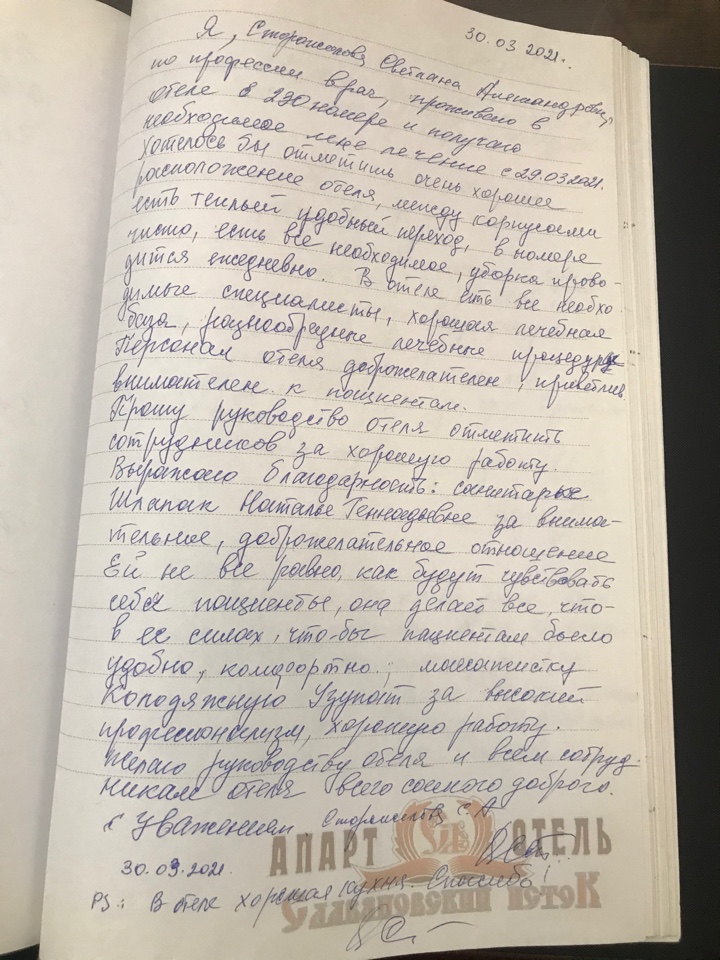 30.03 2021г.
Я, Сторожилова Светлана Александровна,
по профессии врач, проживаю в
отеле в 230 номере и получаю
необходимое мне лечение с 29.03 2021.
Хотелось бы отметить очень хорошее
расположение отеля, между корпусами
есть теплый удобный переход, в номере
чисто, есть все необходимое, уборка прово-
дится ежедневно. В отеле есть все необхо-
димые специалисты, хорошая лечебная
база, разнообразные лечебные процедуры
Персонал отеля доброжелателен, приветлив
внимателен к пациентам.
Прошу руководство отеля отметить
сотрудников за хорошую работу.
Выражаю благодарность: санитарке
Шлапак Наталье Геннадьевне за внима-
тельное, доброжелательное отношение
Ей не все равно, как будут чувствовать
себя пациенты, она делает все, что-
в ее силах, что-бы пациентам было
удобно, комфортно.; массажистку
Колодяжную за высокий
профессионализм, хорошую работу.
Желаю руководству отеля и всем сотруд-
никам отеля всего самого доброго.
с уважением С. А
АПАРТ ОТЕЛЬ
30.03.2021
PS: В отеле хорошая кухня. Спасибо!
Славяновский исток